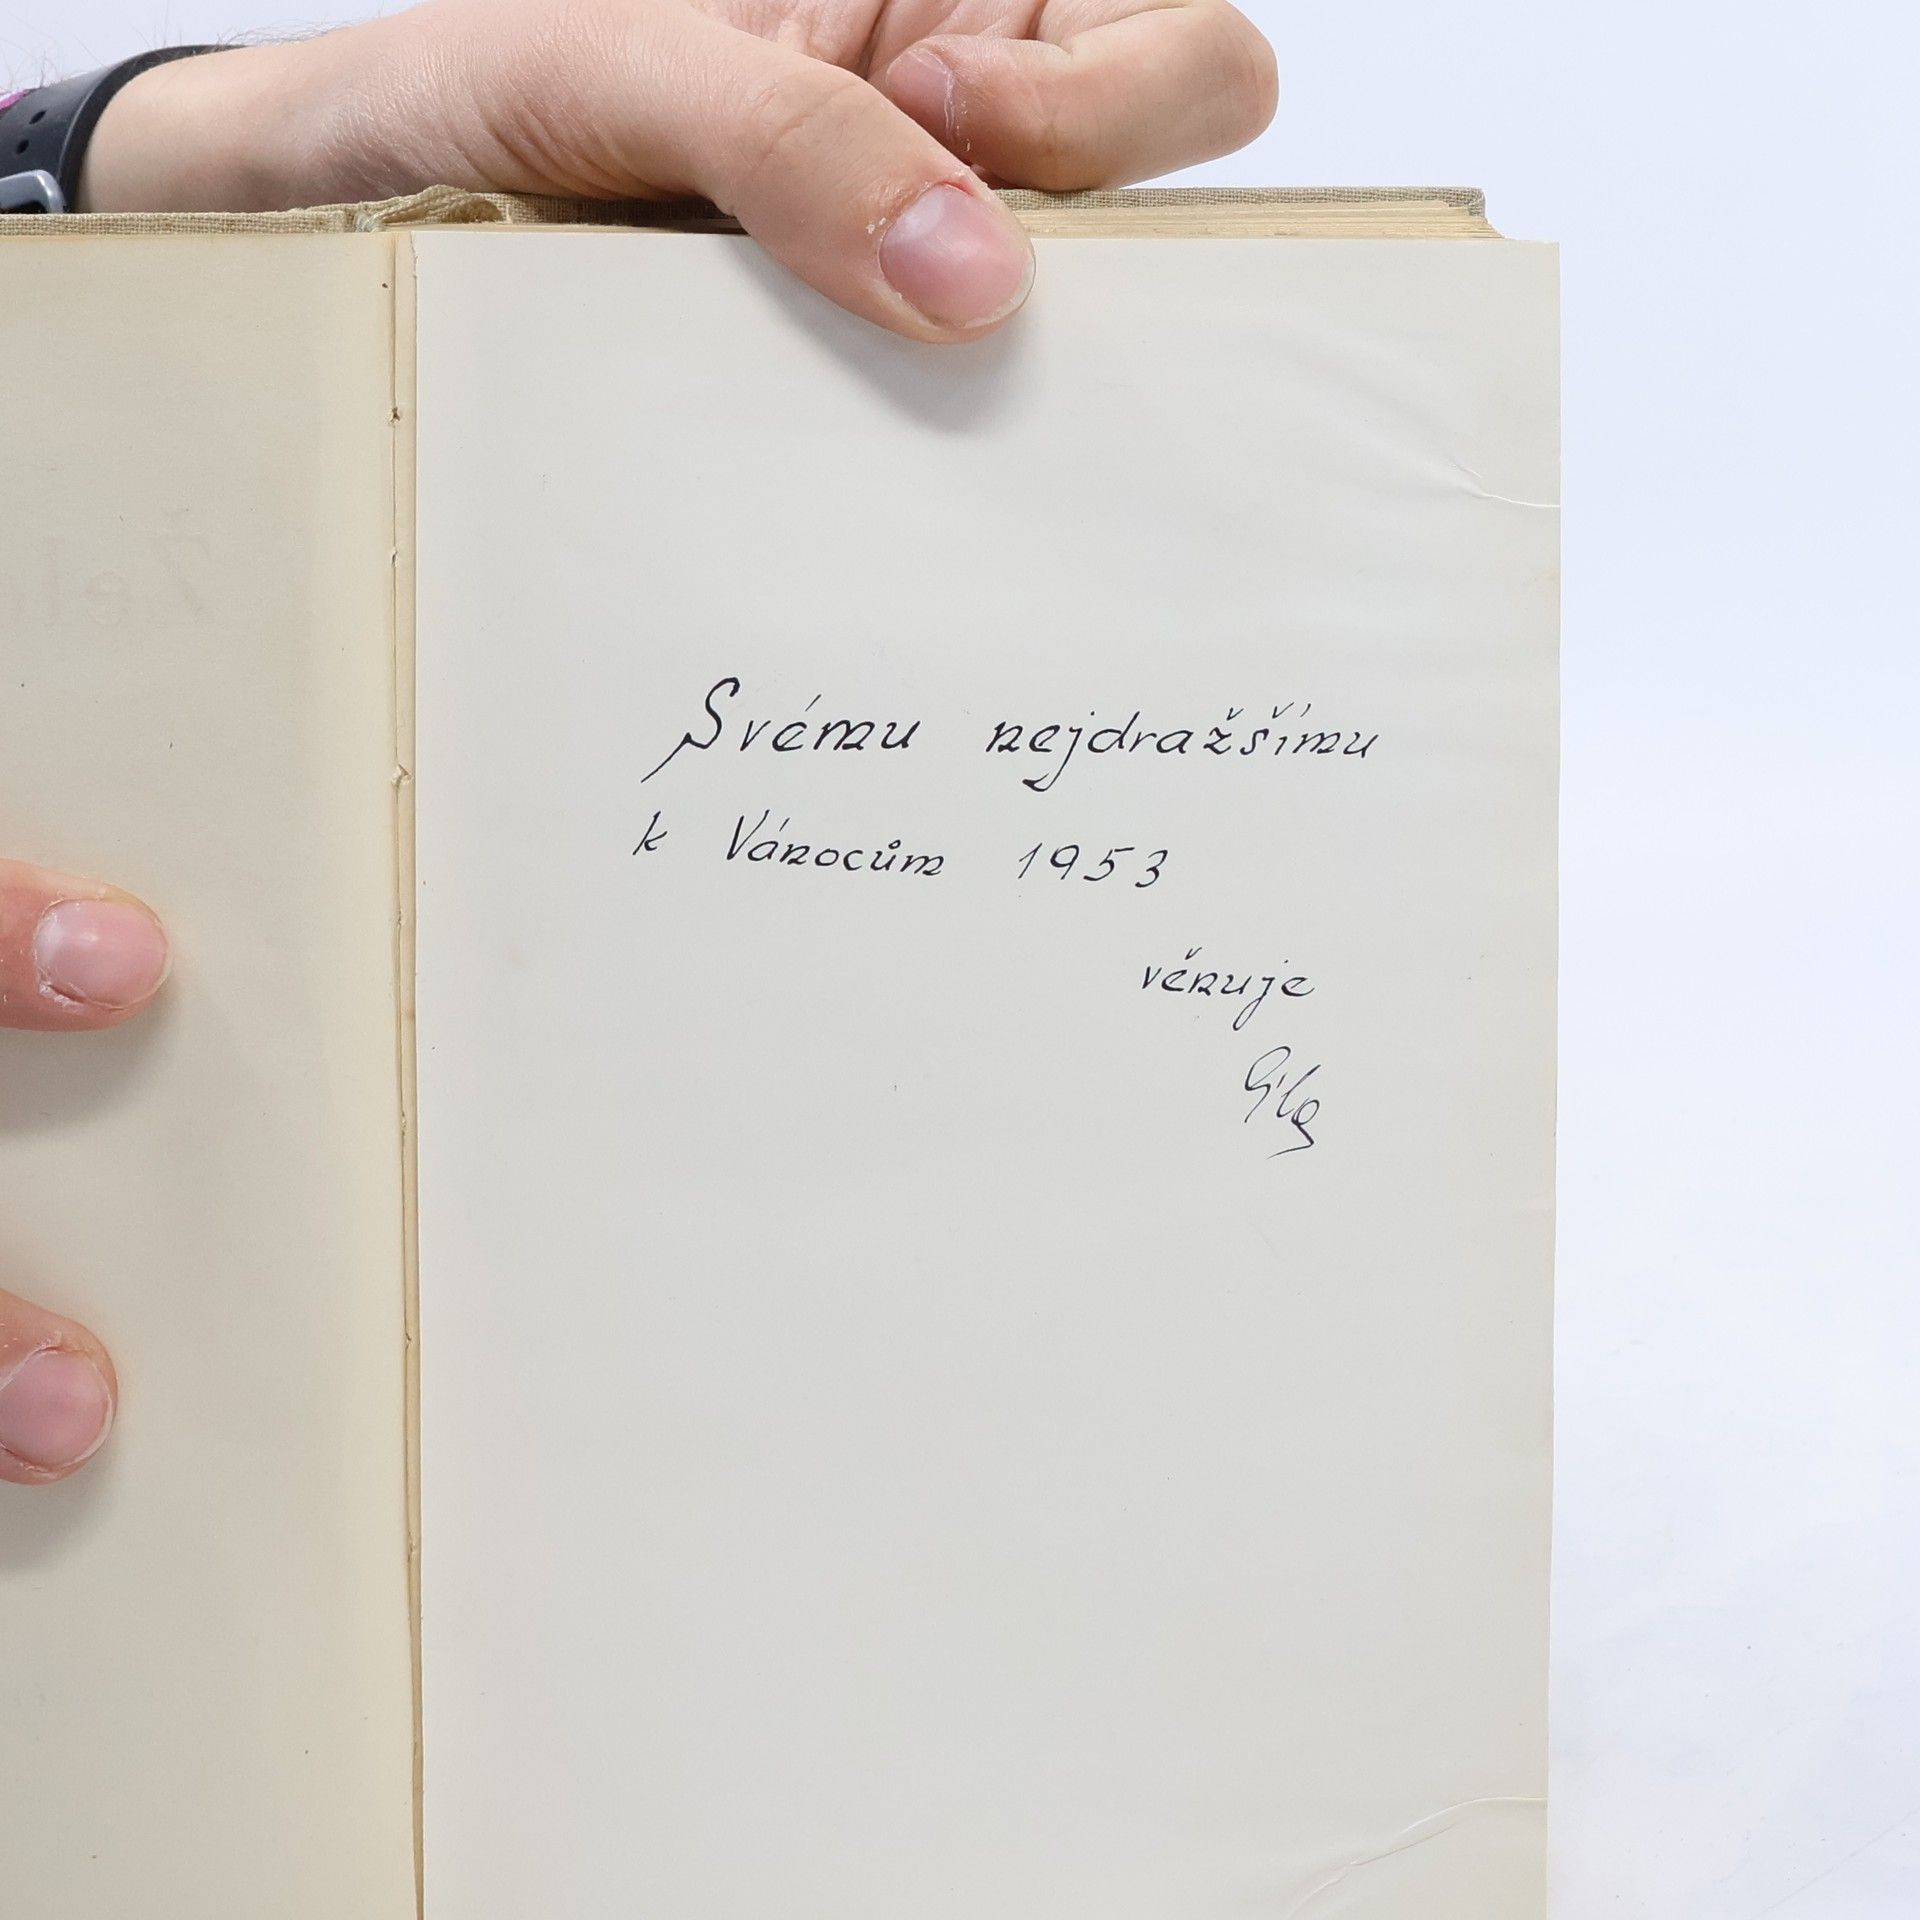 Svému nejdražšímu
k Vánocům 1953
věnuje